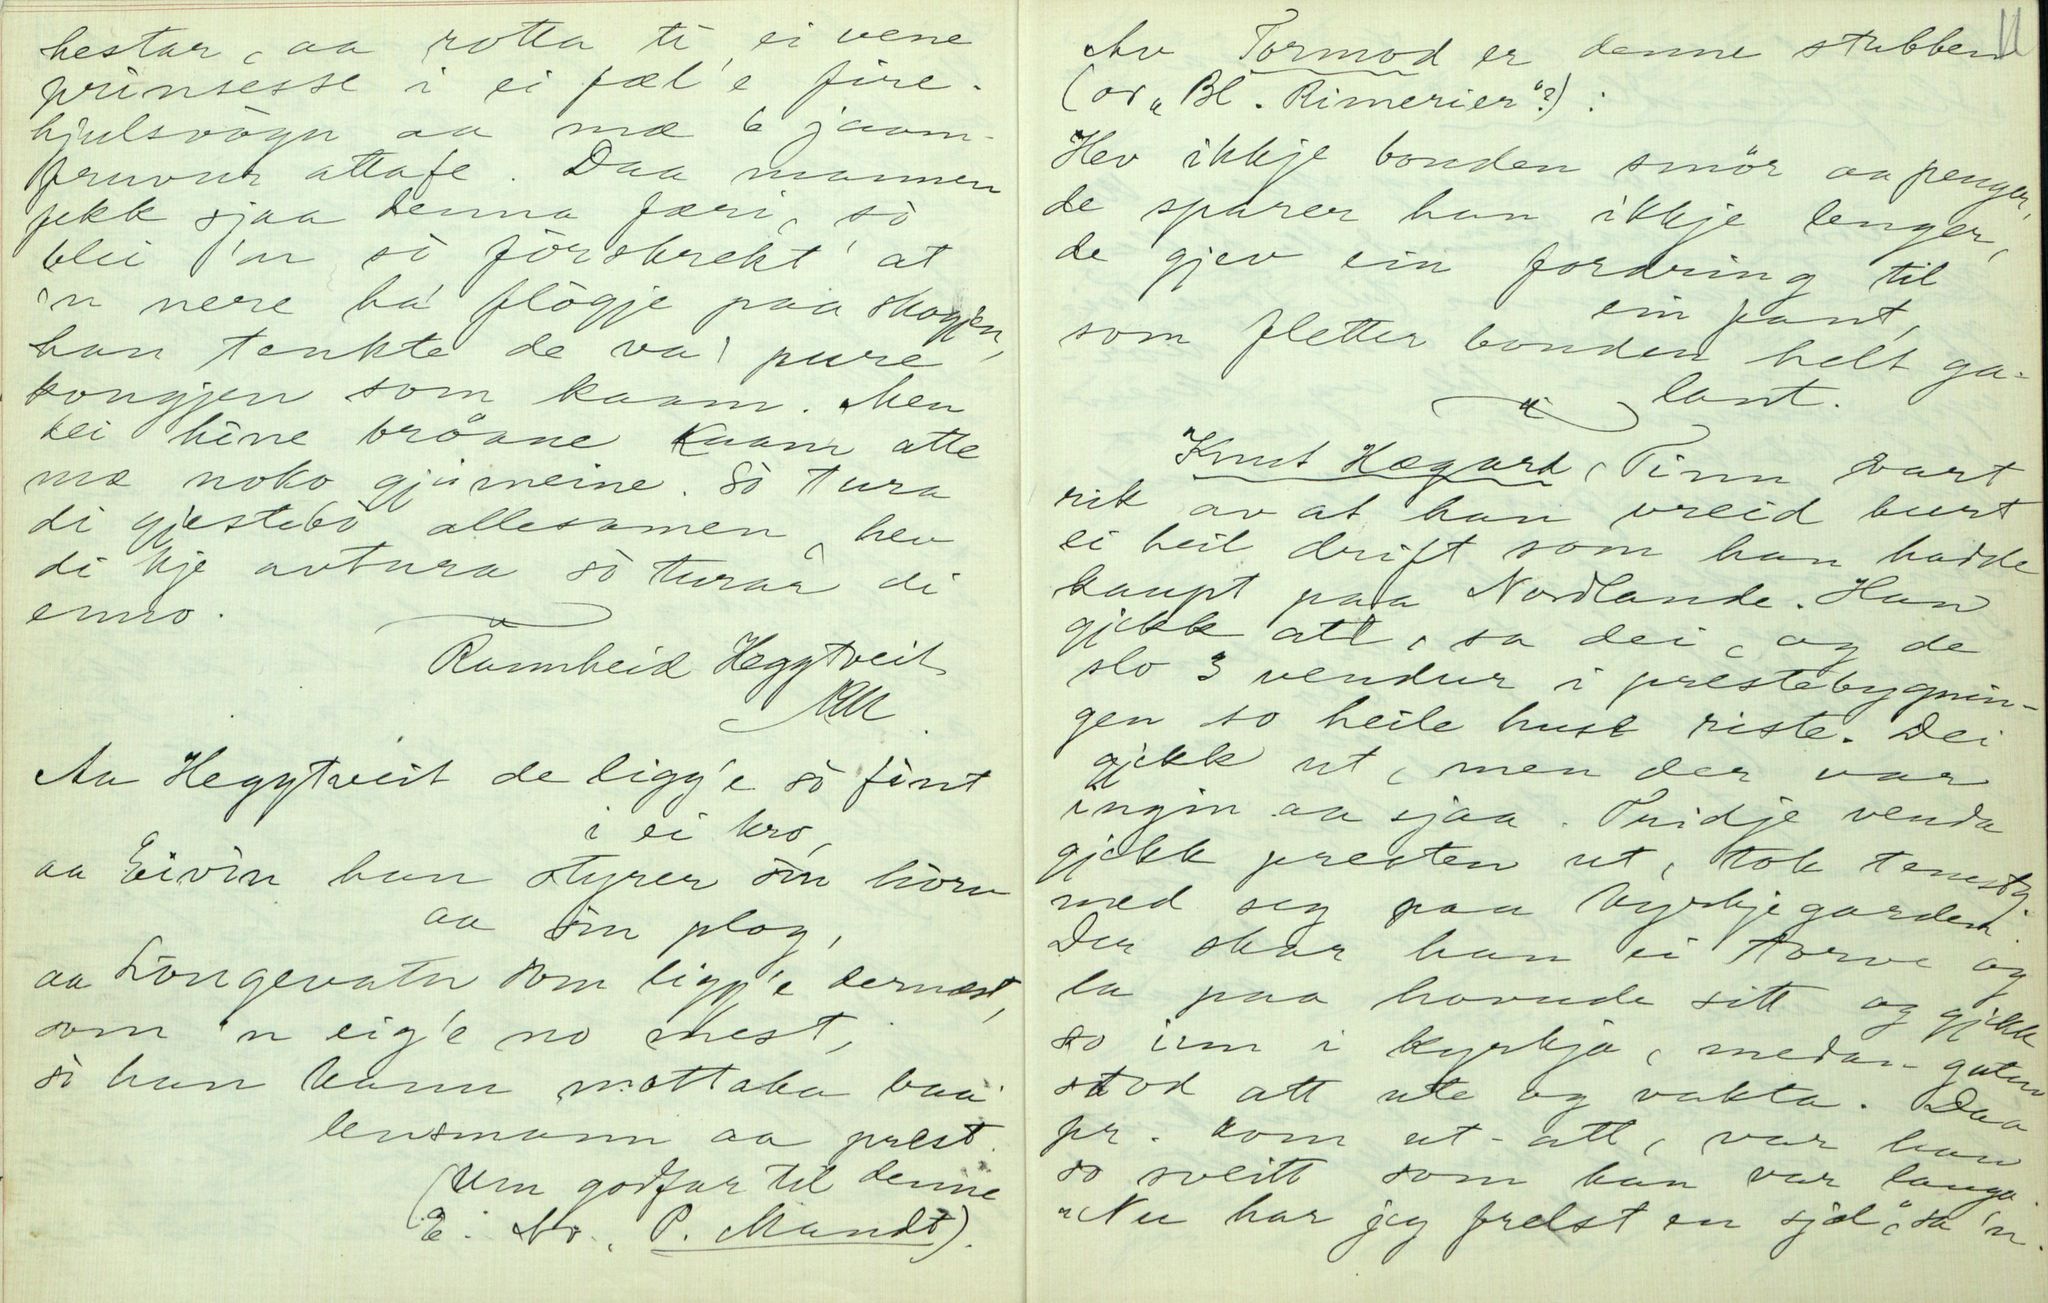 hestar, aa rotta ti ei vene
prinsesse i ei fæl'e fire-
hjulsvògn aa mæ 6 jaam-
fruvur attafe. Daa mannen
fekk sjaa denna færi, sò
blei 'n sò förskrekt' at
'n nere ha' flögje paa skogjen,
han tenkte de va' pure
kongjen som kaam. Men
dei hine bröane kaam atte
mæ noko gjimeine. Sò tura
di gjestebò allesamen, hev
di kje avtura sò turar di
enno.
Rannheid Heggtveit
Aa Heggtveit de ligg'e sò fint
i ei kro,
aa Eivin han styrer sin hòrv
aa sin plog,
aa Longevatn som ligg'e dernæst,
som 'n eig'e no mest,
sò han kann mottaka baa'
lensmann aa prest.
(Um godfar til denne
E. Av. P. Mandt).
11
Av Tormod er denne stubben
(or „Bl. Rimerier"?):
Hev ikkje bonden smör aa pengar,
de sparer han ikkje lenger,
de gjev ein fordring til
ein fant,
som fletter bonden helt ga-
lant.
Knut Hægard, Tinn vart
rik av at han vreid burt
ei heil drift som han hadde
kaupt paa Nordlande. Han
gjekk att, sa dei, og de
slo 3 vendur i prestebygnin-
gen so heile huse riste. Dei
gjekk ut, men der var
ingin aa sjaa. Tridje venda
gjekk presten ut, tok tenestg.
med seg paa kyrkjegarden.
Der skar han ei torve og
la paa hovude sitt og gjekk
so inn i kyrkja, medan guten
stod att ute og vakta. Daa
pr. kom ut-att, var han
so sveitt som han var lauga.
„Nu har jeg frelst en sjæl", sa 'n.